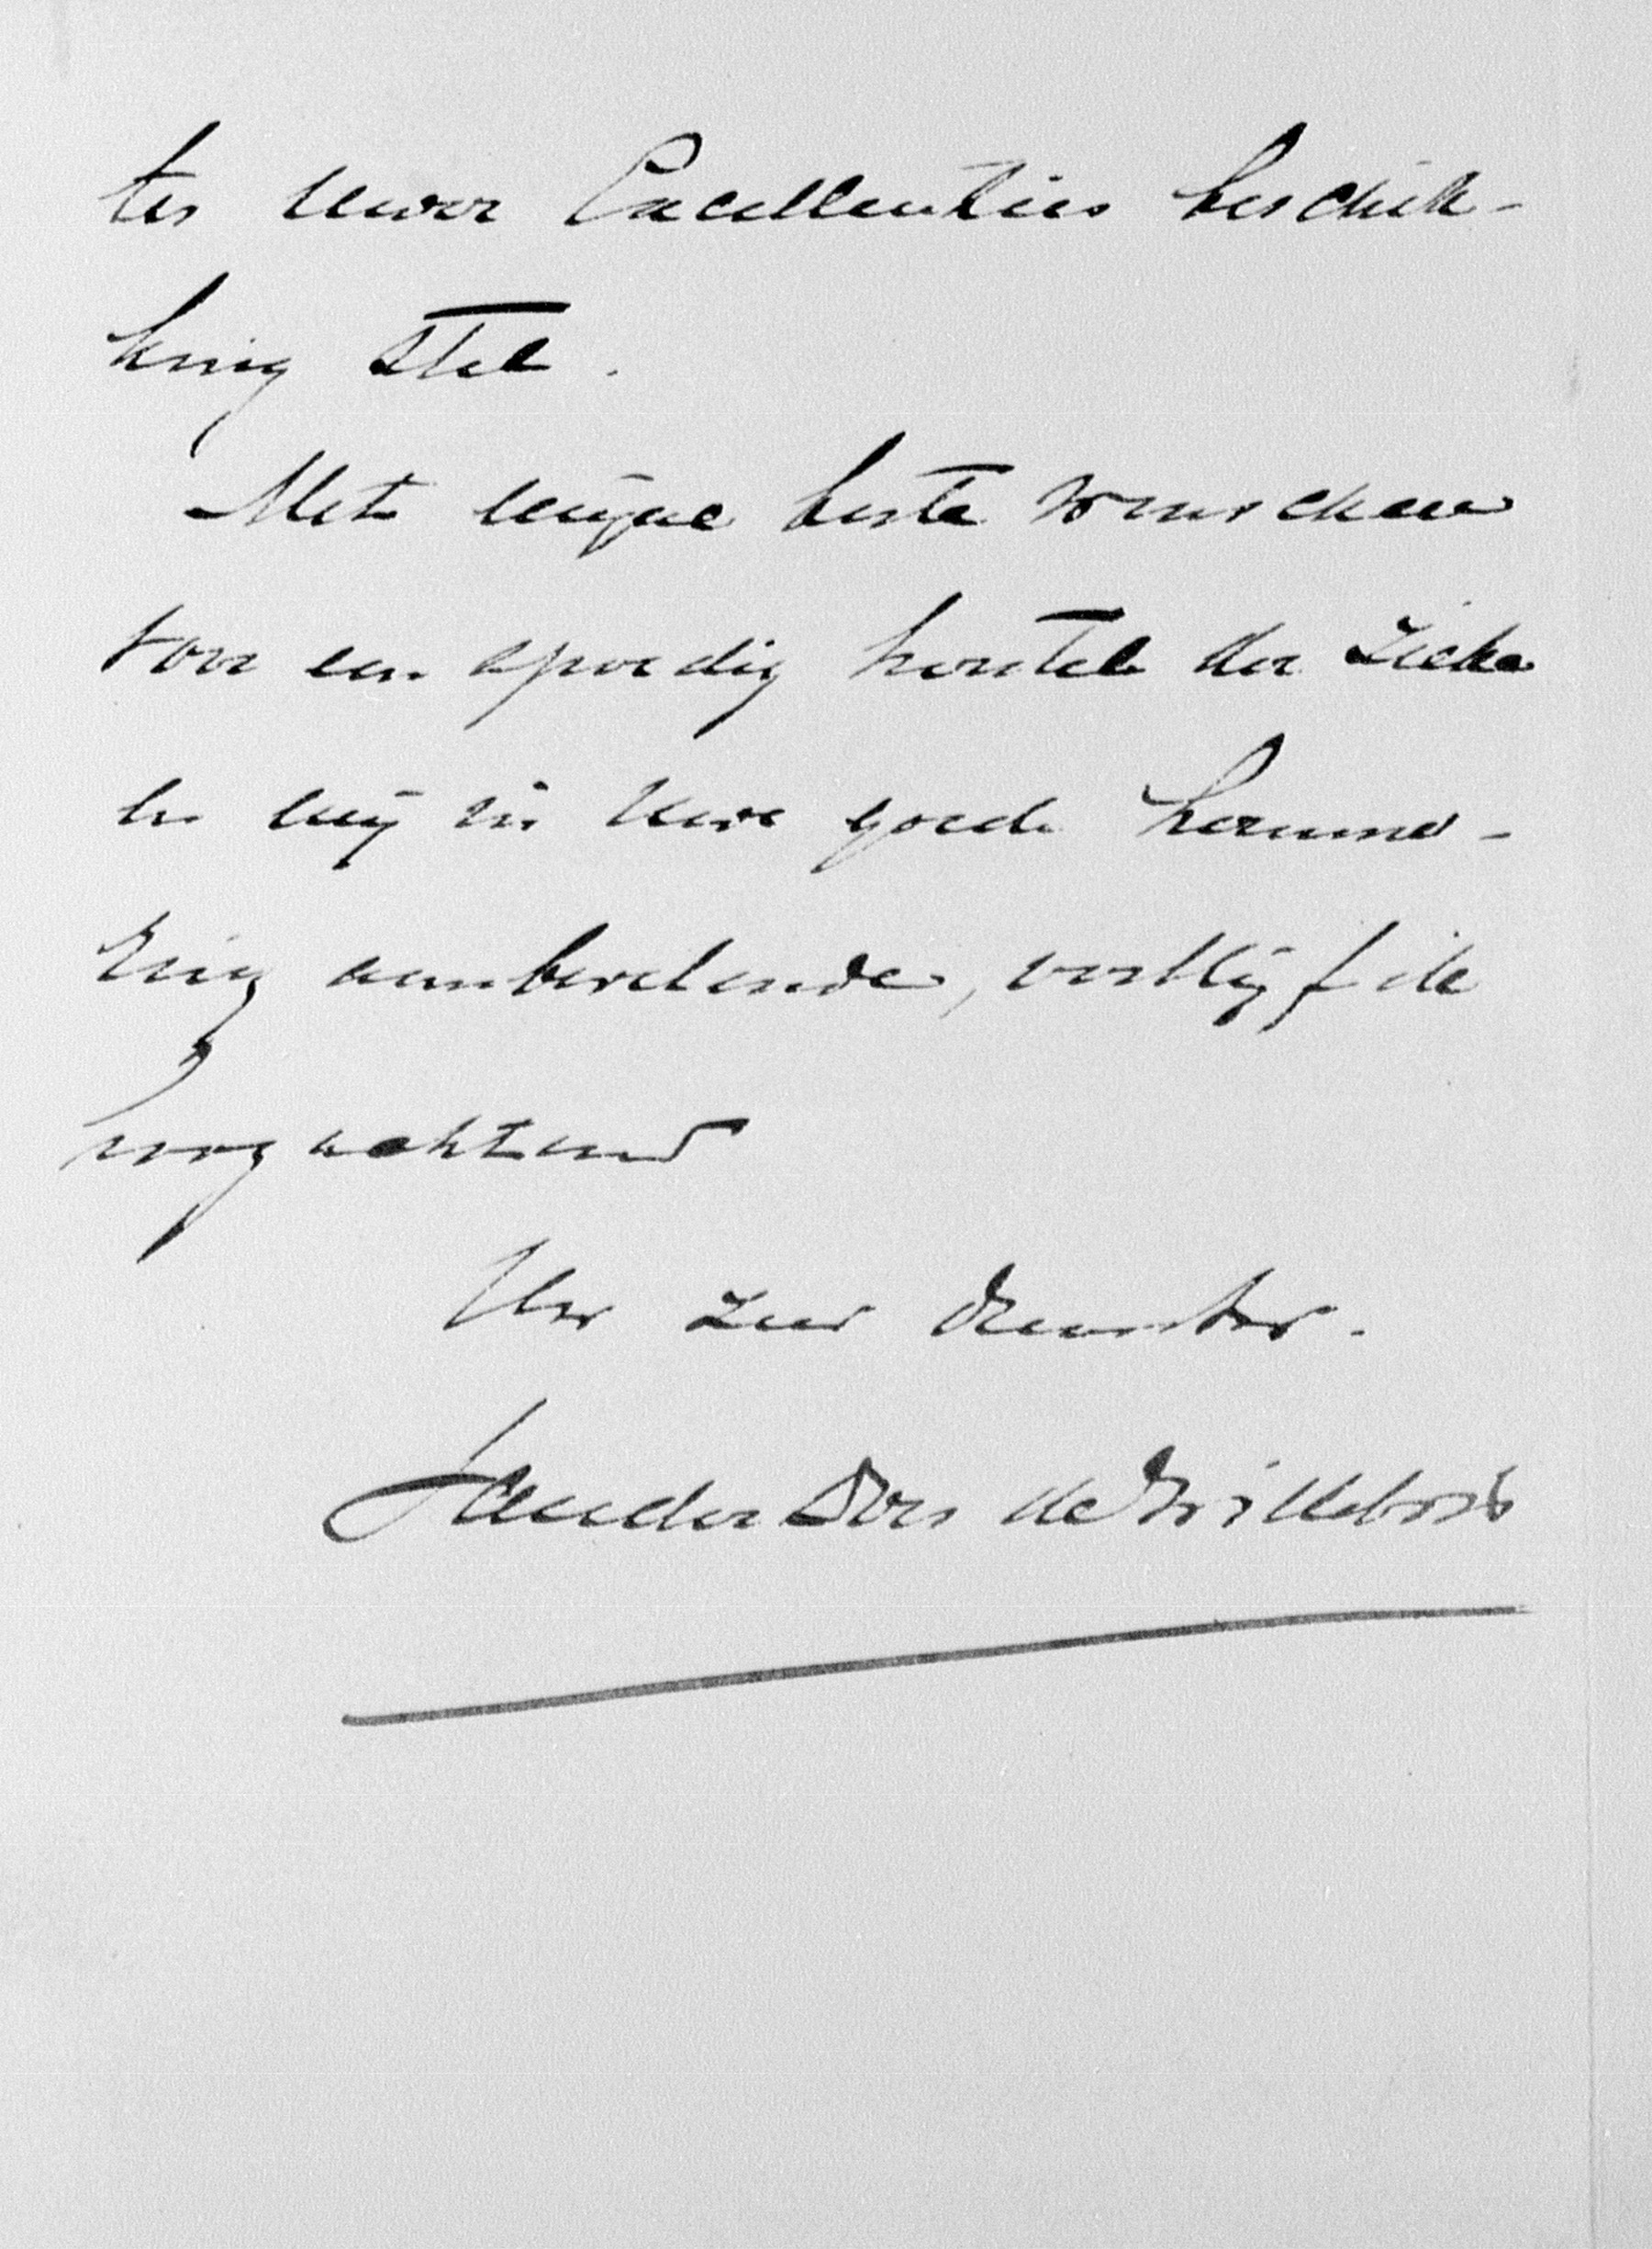 ter Uwer Excellenties beschik-
king stel.
Met mijne beste wenschen
voor een spoedig herstel der zieke
en mij in Uwe goede herinne-
ring aanbevelende, verblijf ik
hoogachtend
Uw zeer dienstw.
Sander Van de Willebois